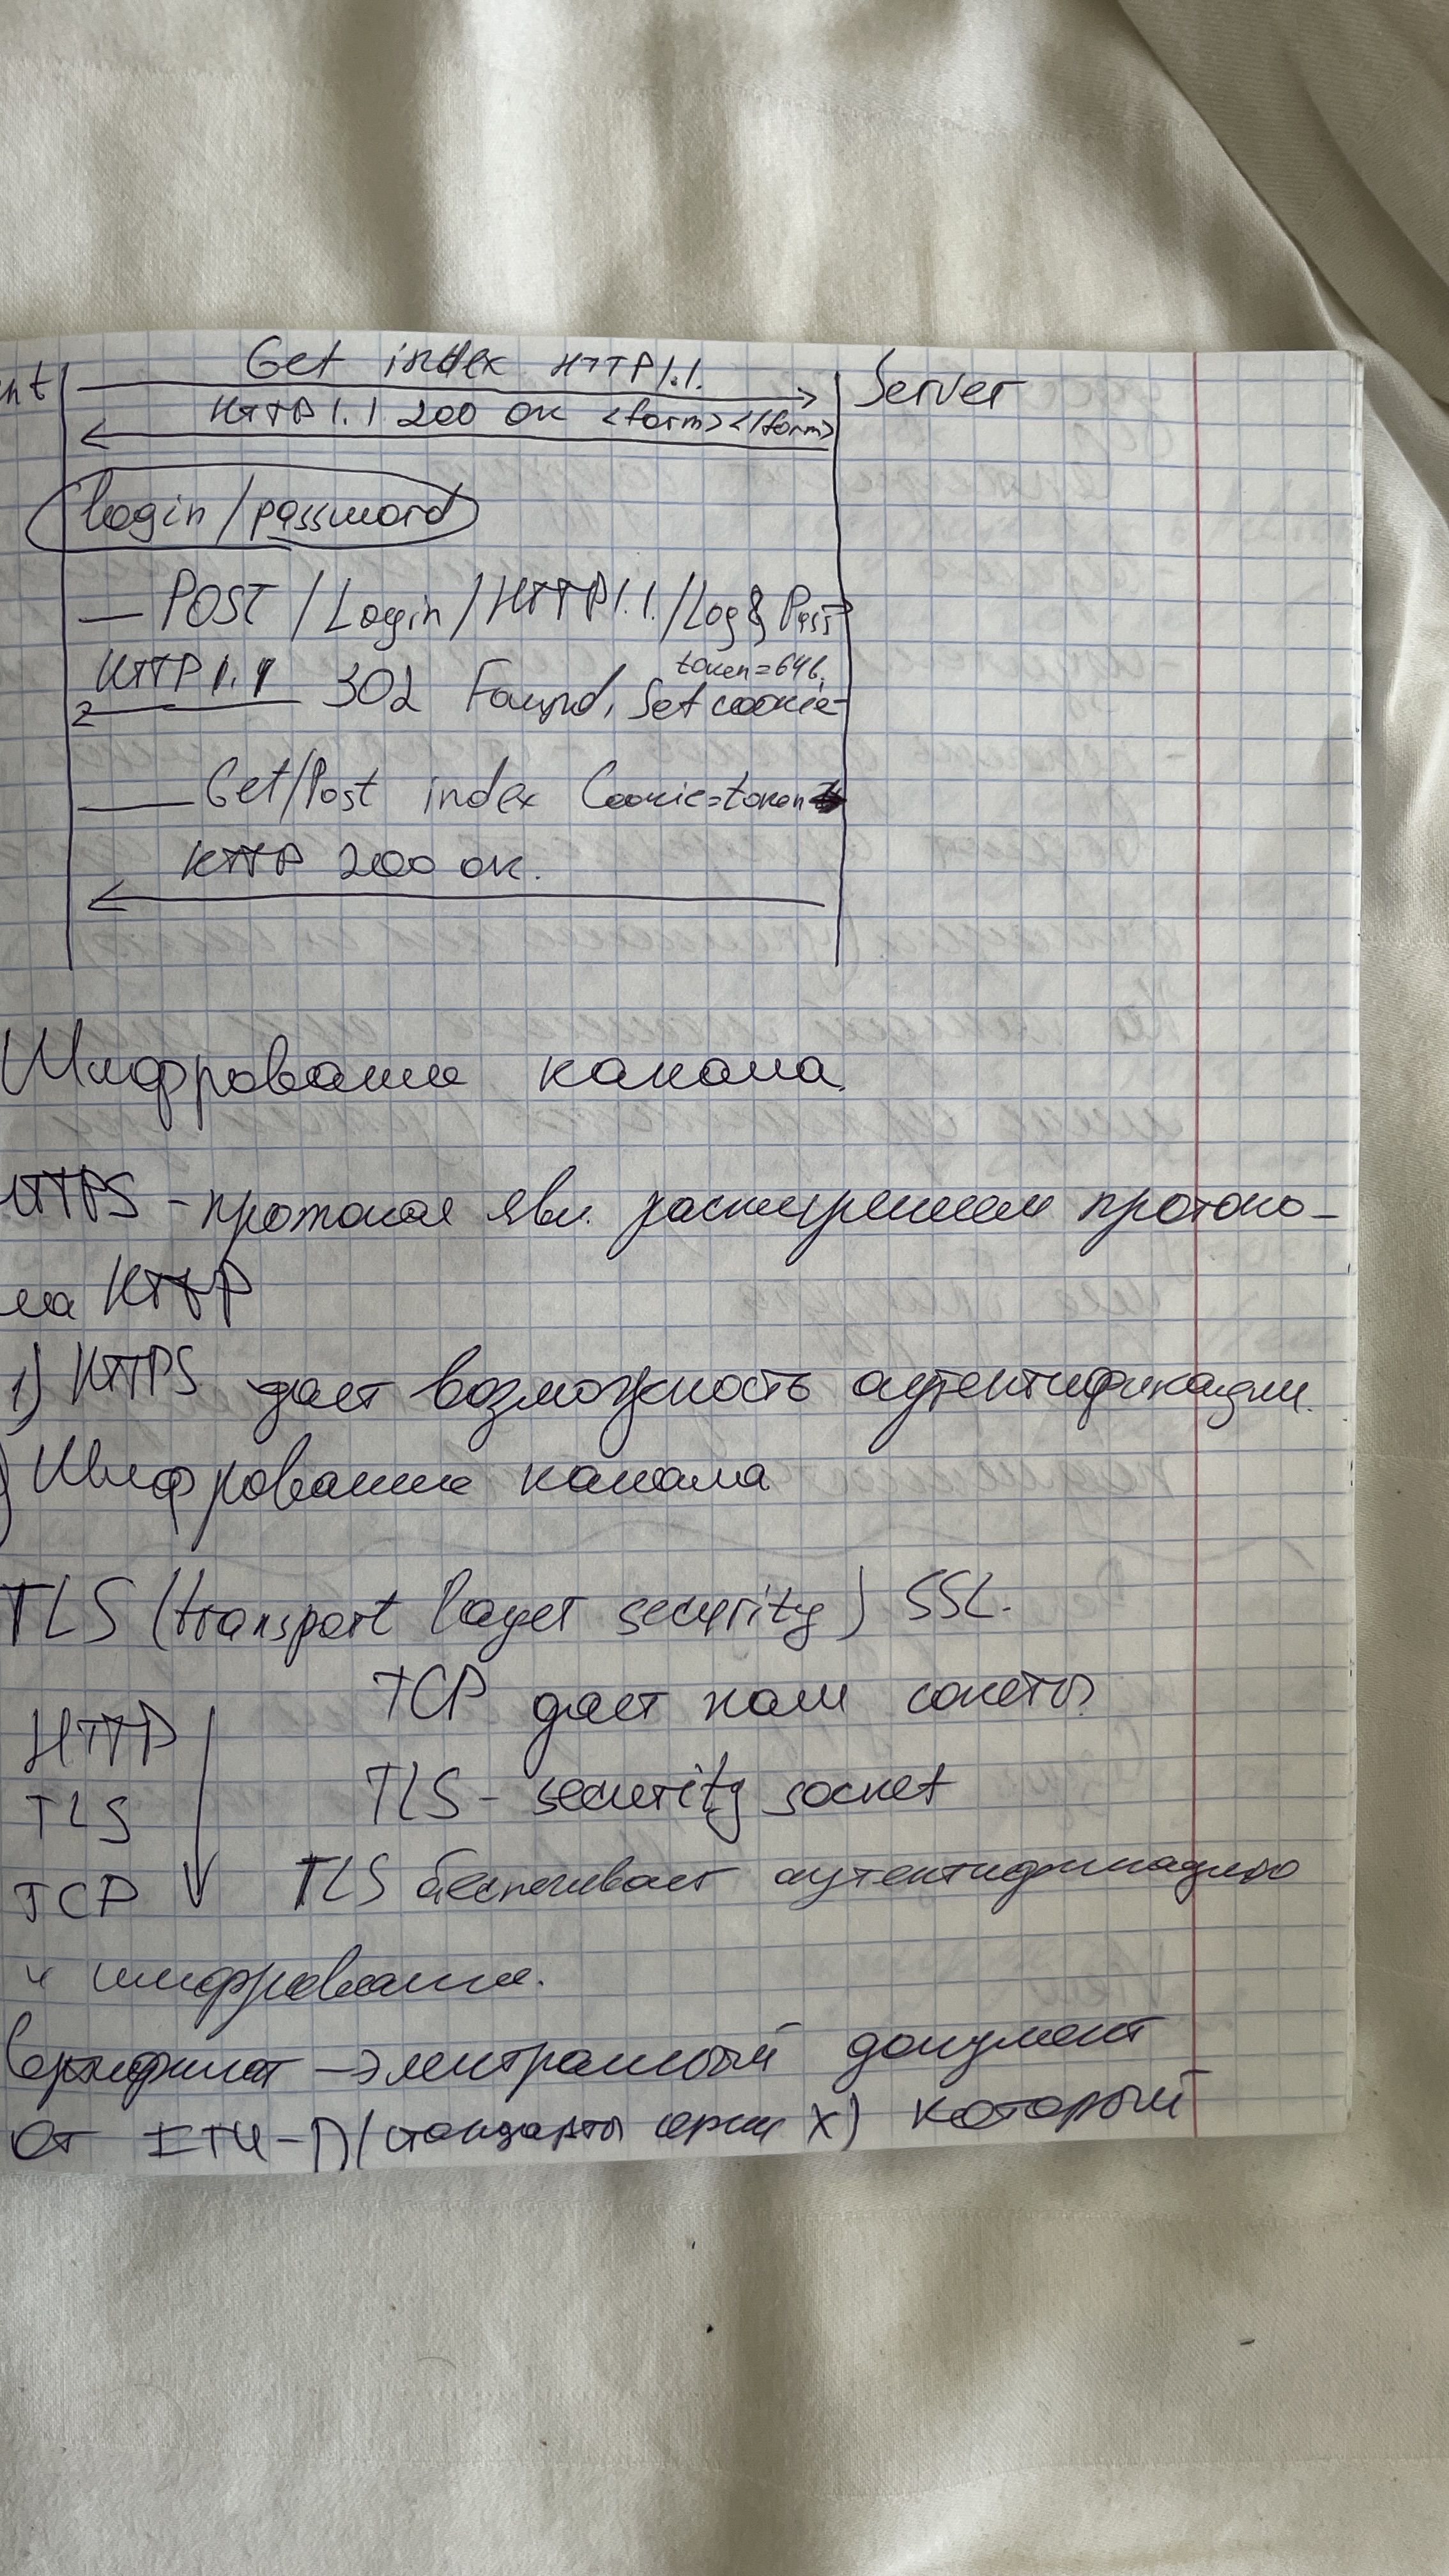 nt Get index HTTP1.1. Server
HTTP 1.1 200 OK <form></form>
login/password
POST /Login/HTTP1.1./Log&Pass
HTTP1.1 302 Found, Set cookie
token=646,
Get/Post index Cookie=token
HTTP 200 OK.
Шифрование канала.
HTTPS - протокол явл. расширением протоко-
ла HTTP
1) HTTPS дает возможность аутентификации.
) Шифрование канала
TLS (transport layer security) SSL.
TCP дает нам сокеты
HTTP
TLS - security socket
TLS
TCP
TLS беспечивает аутентификацию
и шифрование.
Сертификат - электронный документ
от ITU-T (стандарты серии X) который